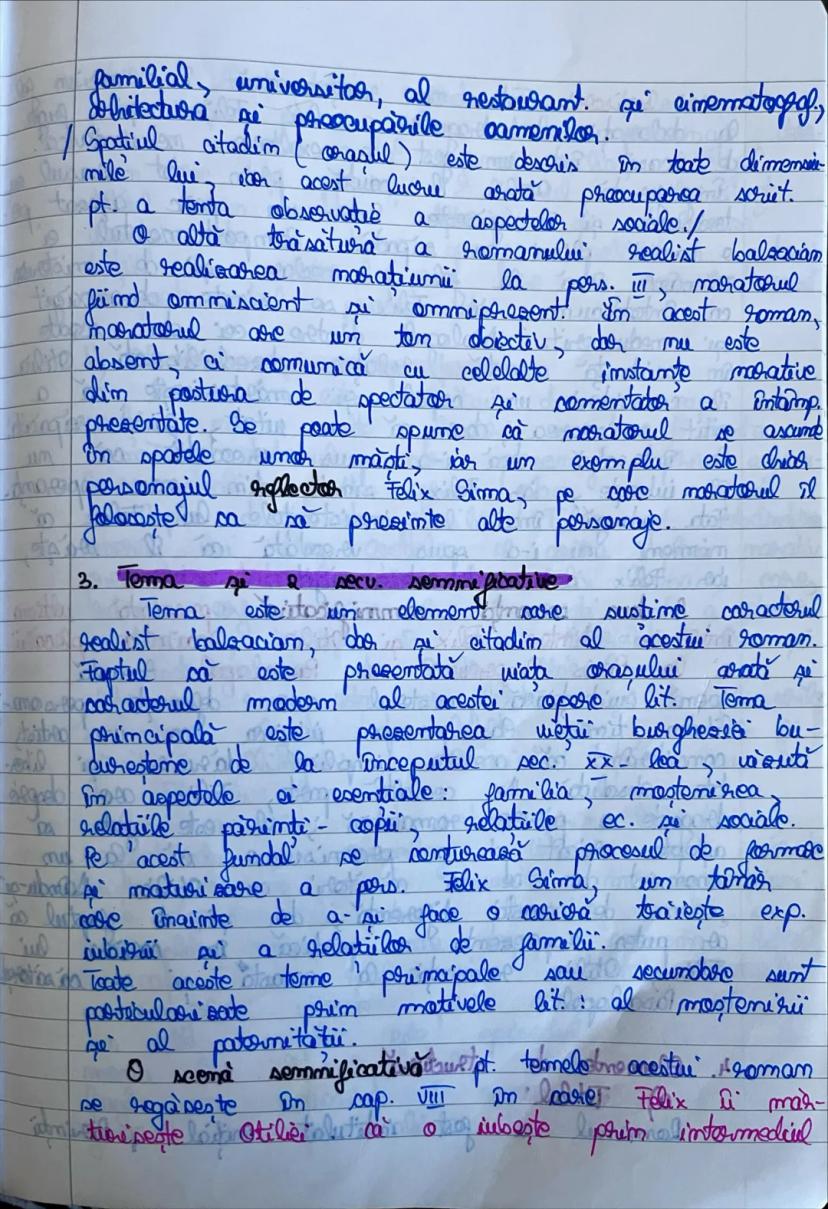 familial, universitar, al restaurant. și cinematograf,
arhitectura și preocupările oamenilor.
/ Spațiul citadin (orașul) este descris în toate dimensiu-
nile lui, iar acest lucru arată preocuparea scriit.
pt. a tenta observație a aspectelor sociale./
O altă trăsătură a romanului realist balzacian
este realizarea narațiunii la pers. III, naratorul
fiind omniscient și omniprezent. În acest roman,
naratorul are un ton obiectiv, dar nu este
absent, ci comunică cu celelalte instanțe narative
din postura de spectator și comentator a întâmp.
prezentate. Se poate spune că naratorul se ascunde
în spatele unor măști, iar un exemplu este chiar
personajul reflector Felix Sima, pe care naratorul îl
folosește ca să prezinte alte personaje.
3. Tema și 2 secv. semnificative
Tema este un element care susține caracterul
realist balzacian, dar și citadin al acestui roman.
Faptul că este prezentată viața orașului arată și
caracterul modern al acestei opere lit. Tema
principală este prezentarea vieții burgheziei bu-
cureștene de la începutul sec. XX-lea, văzută
în aspectele ei esențiale: familia, moștenirea,
relațiile părinți-copii, relațiile ec. și sociale.
Pe acest fundal se conturează procesul de formare
și maturizare a pers. Felix Sima, un tânăr
care înainte de a-și face o carieră trăiește exp.
iubirii și a relațiilor de familii.
Toate aceste teme principale sau secundare sunt
particularizate prin motivele lit.: al moștenirii
și al paternității.
O scenă semnificativă pt. temele acestui roman
se regăsește în cap. VIII în care Felix îi măr-
turisește Otiliei că o iubește prin intermediul